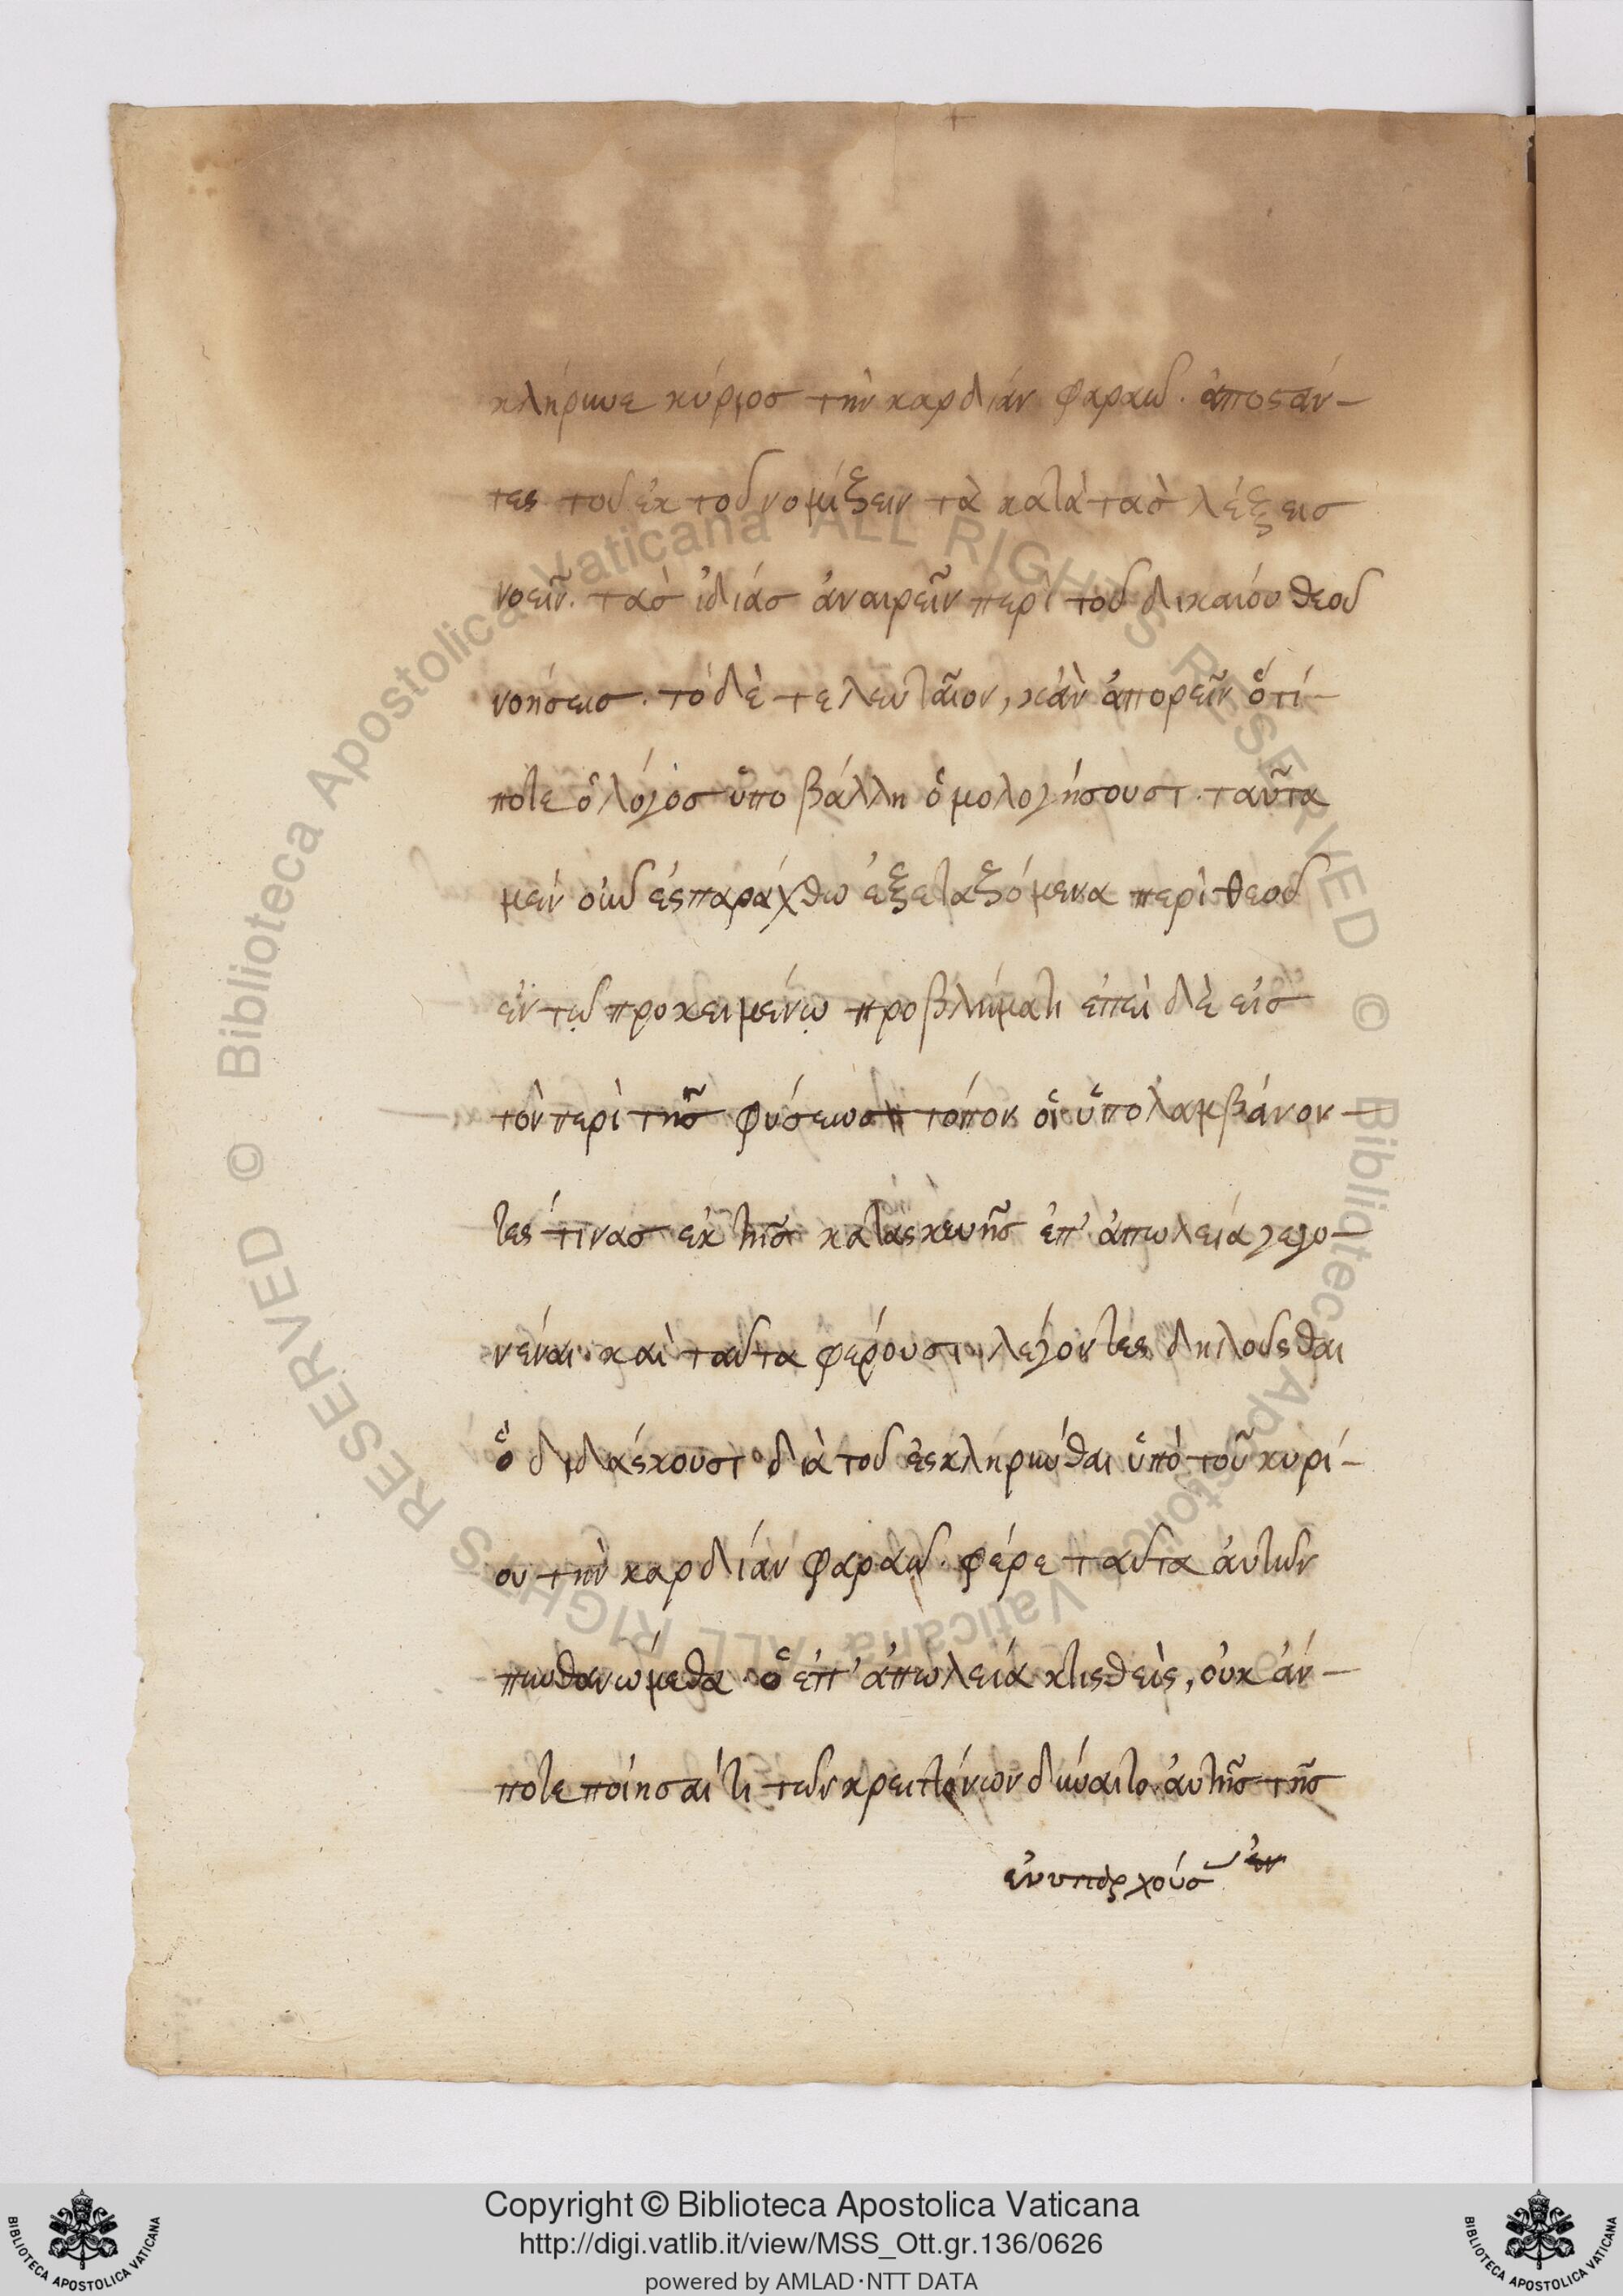 κλήρυνε κύριος τὴν καρδίαν φαραώ. ἀποστάν-
τες τοῦ ἐκ τοῦ νομίζειν τὰ κατὰ τὰς λέξεις
νοεῖν. τὰς ἰδίας ἀναιρεῖν περὶ τοῦ δικαίου θεοῦ
νοήσεις. τὸ δὲ τελευταῖον, κἀν ἀπορεῖν ὅτί-
ποτε ὁ λόγος ὑποβάλλη ὁμολογήσουσι. ταῦτα
μὲν οὖν ἐσπαράχθω ἐξεταζόμενα περὶ θεοῦ
ἐν τῷ προκειμένῳ προβλήματι ἐπεὶ δὲ εἰς
τὸν περὶ τῆς φύσεως τόπον οἱ ὑπολαμβάνον-
τες τινὰς ἐκ τῆς κατασκευῆς ἐπ' ἀπωλεία γεγο-
νέναι. καὶ ταῦτα φέρουσι λέγοντες δηλοῦσθαι
ὃ διδάσκουσι διὰ τοῦ ἐσκληρύνθαι ὑπὸ τοῦ κυρί-
ου τὴν καρδίαν φαραώ. φέρε ταῦτα αὐτῶν
πυθανώμεθα. ὁ ἐπ' ἀπωλεία κτισθεὶς, οὐκ ἄν-
ποτε ποίησαί τι τῶν κρειττόνων δύναιτο. αὐτῆς τῆς
ἐνυπαρχούσ
Copyright © Biblioteca Apostolica Vaticana
http://digi.vatlib.it/view/MSS_Ott.gr.136/0626
powered by AMLAD·NTT DATA
© Biblioteca Apostolica Vaticana ALL RIGHTS RESERVED
© Biblioteca Apostolica Vaticana ALL RIGHTS RESERVED
BIBLIOTECA APOSTOLICA VATICANA
BIBLIOTECA APOSTOLICA VATICANA